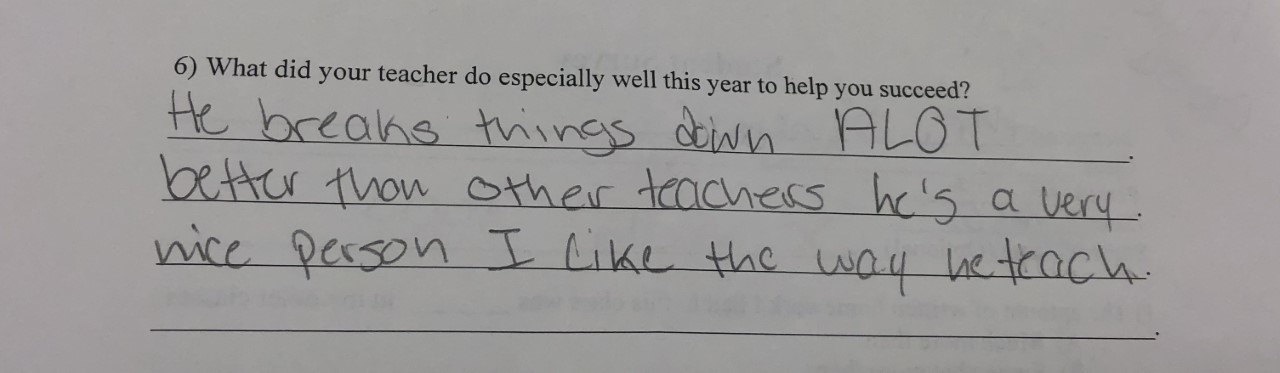 6) What did your teacher do especially well this year to help you succeed?
He breaks things down ALOT
better than other teachers he's a very
nice person I like the way he teach.